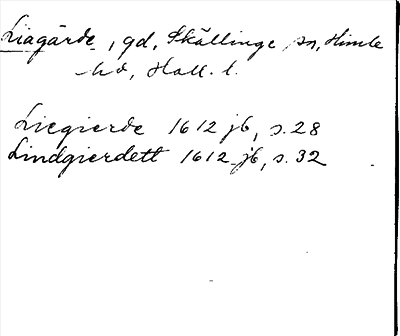 Liagärde, gd, Skällinge sn, Himle
hd, Hall. l.
Liegierde 1612 jb, s. 28
Lindgierdett 1612 jb, s. 32